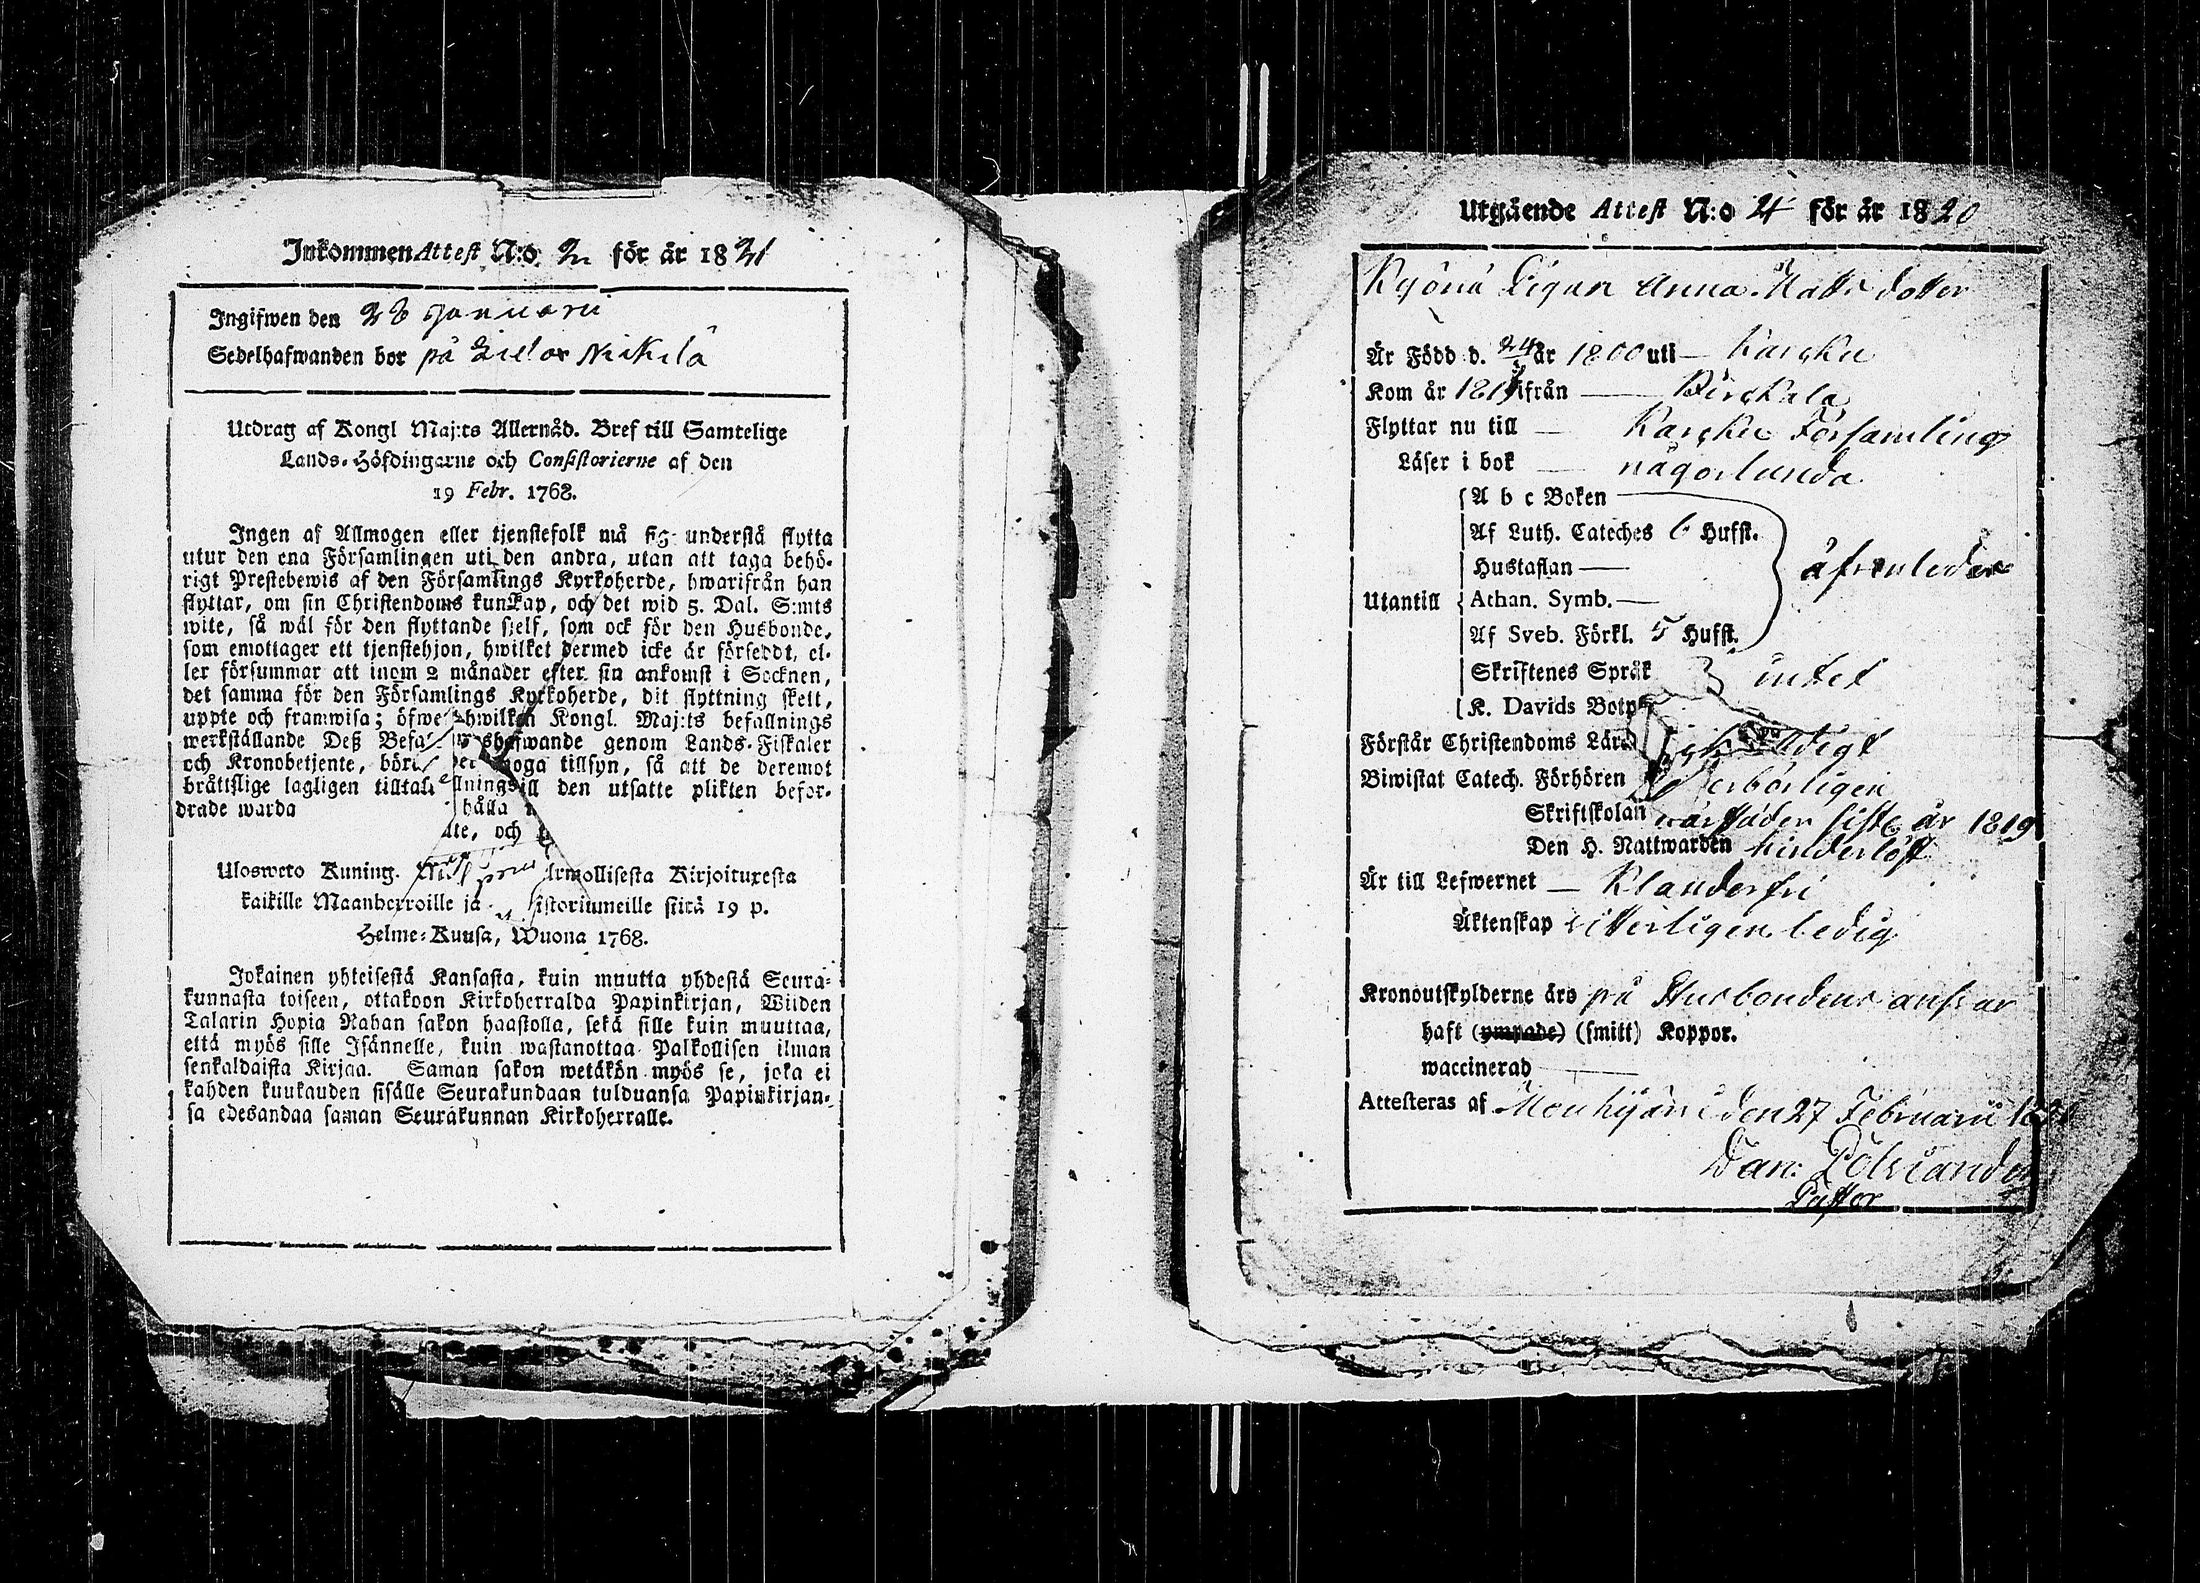 Inkommen Attest N:o 2 för år 1821
Ingifwen den 28 Januarii
Sedelhafwanden bor på Nikilä
Utdrag af Kongl Maj:ts Allernåd. Bref till Samtelige
Lands-Höfdingarne och Consistorierne af den
19 Febr. 1768.
Ingen af Allmogen eller tjenstefolk må sig understå flytta
utur den ena Församlingen uti den andra, utan att taga behö-
rigt Prestebewis af den Församlings Kyrkoherde, hwarifrån han
flyttar, om sin Christendoms kunskap, och det wid 5. Dal. S:mts
wite, så wäl för den flyttande sjelf, som ock för den Husbonde,
som emottager ett tjenstehjon, hwilket dermed icke är försedt, el-
ler försummar att inom 2 månader efter sin ankomst i Socknen,
det samma för den Församlings Kyrkoherde, dit flyttning skett,
uppte och framwisa; öfwer hwilken Kongl. Maj:ts befallnings
werkställande Deß Befal hafwande genom Lands-Fiskaler
och Kronobetjente, böra noga tillsyn, så att de deremot
bråttslige lagligen tilltal till den utsatte plikten befor-
drade warda
hålla
och
Ulosweto Kuning. Armollisesta Kirjoituxesta
kaikille Maanherroille ja sistoriumeille siitä 19 p.
Helme-Kuusa, Wuona 1768.
Jokainen yhteisestä Kansasta, kuin muutta yhdestä Seura-
kunnasta toiseen, ottakoon Kirkoherralda Papinkirjan, Wiiden
Talarin Hopia Rahan sakon haastolla, sekä sille kuin muuttaa,
että myös sille Isännelle, kuin wastanottaa Palkollisen ilman
senkaldaista Kirjaa. Saman sakon wetäkön myös se, joka ei
kahden kuukauden sisälle Seurakundaan tulduansa Papinkirjan-
sa edesandaa saman Seurakunnan Kirkoherralle.
Utgående Attest N:o 24 för år 1820
Pigan Anna Matts dotter
Är Född d. 24 år 1800 uti — Karcku
Kom år 1819 ifrån — Birckala
Flyttar nu till — Karcku Församling
Läser i bok — någorlunda
A b c Boken
Af Luth. Cateches 6 Hufst.
Hustaflan —
Utantill Athan. Symb. —
Af Sveb. Förkl. 5 Hufst.
åfvenledes
Skriftenes Språk intet
K. Davids Botps
Förstår Christendoms Lära
Biwistat Catech. Förhören
Skriftskolan siste år 1819
Den H. Nattwarden hinderlöst
Är till Lefwernet — Klanderfri
Äktenskap ledig
Kronoutskylderne äro på Husbondens answar
haft (ympade) (smitt) Koppor.
waccinerad —
Attesteras af Mouhijärvi den 27 Februarii 1821
Dan: Polviander
Pastor